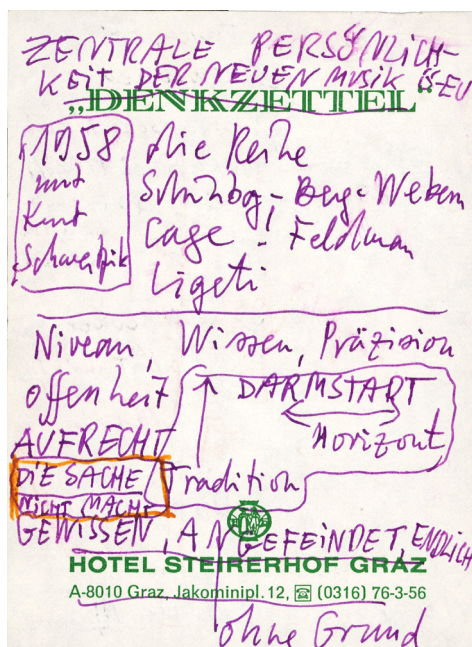 ZENTRALE PERSÖNLICH-
KEIT DER NEUEN MUSIK Ö-EU
„DENKZETTEL“
1958
mit
Kurt
Schwertsik
die Reihe
Schönbg - Berg - Webern
Cage ! Feldman
Ligeti
Niveau, Wissen, Präzision
Offenheit
DARMSTART
AUFRECHT
Horizont
DIE SACHE
NICHT MACHT
Tradition
GEWISSEN, ANGEFEINDET, ENDLICH
HOTEL STEIRERHOF GRAZ
A-8010 Graz, Jakominipl. 12, ☎ (0316) 76-3-56
ohne Grund